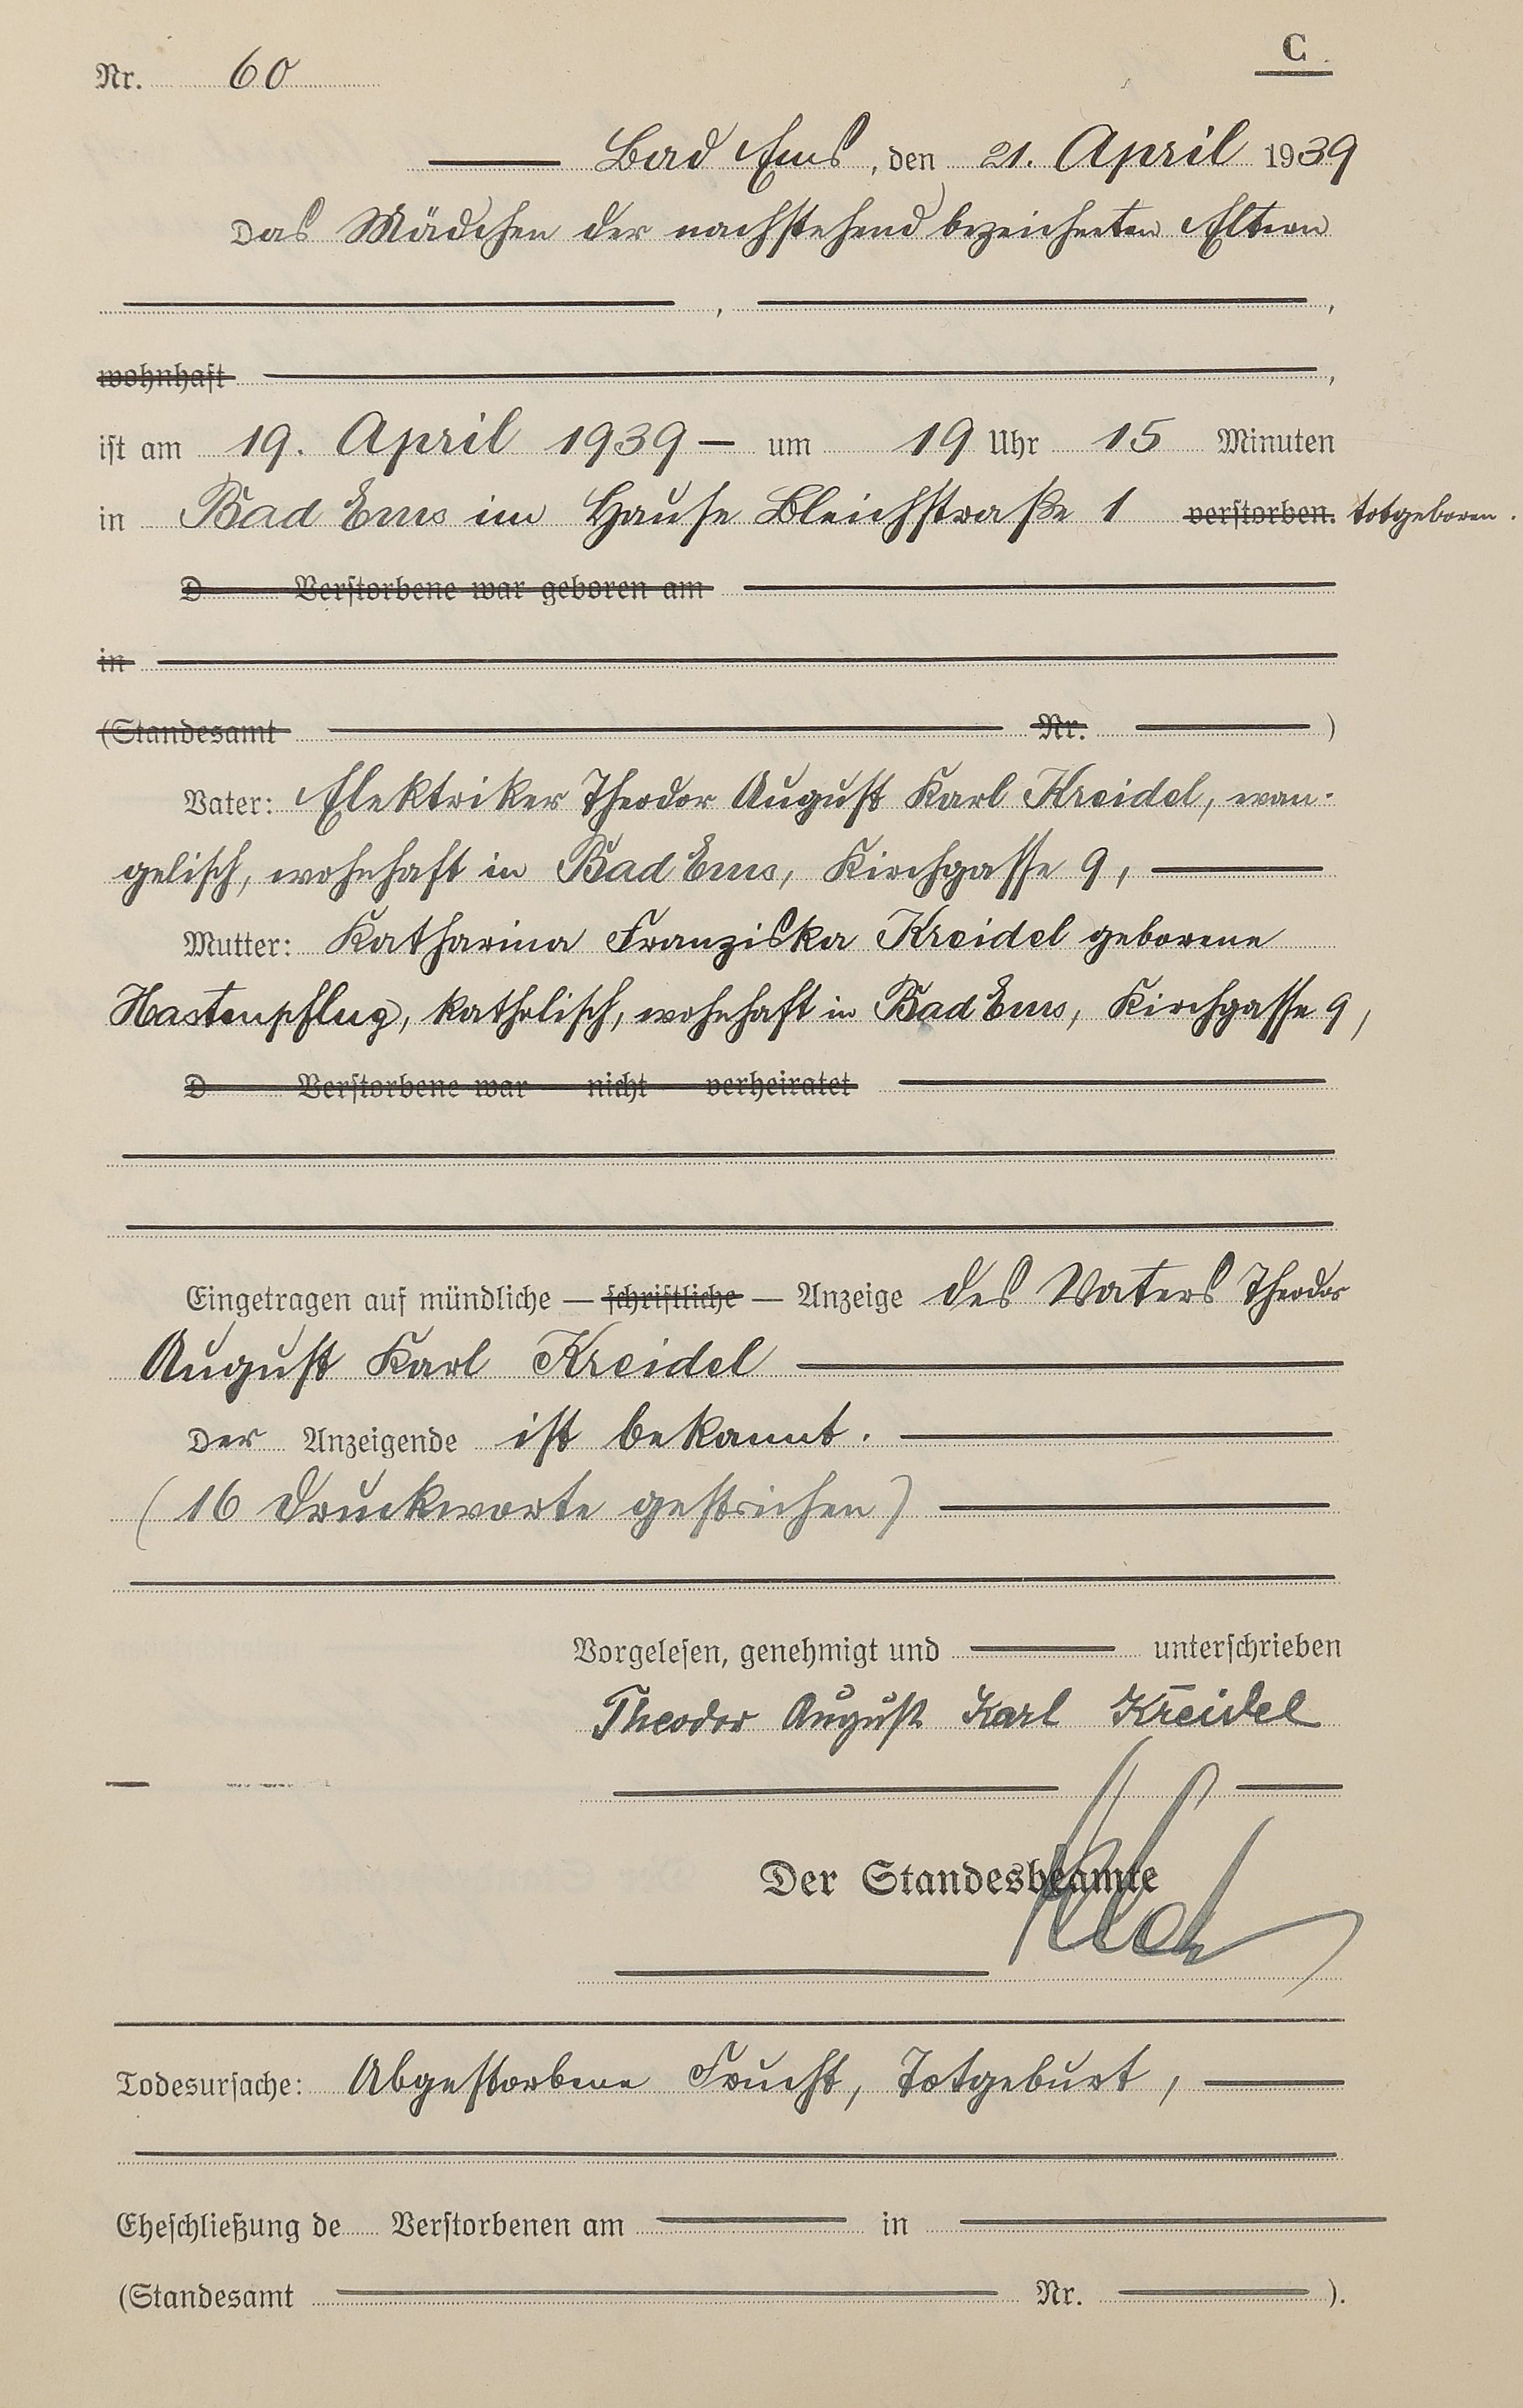 Nr. 60
C
Bad Ems, den 21. April 1939
Das Mädchen der nachstehend bezeichneten Eltern
, ,
wohnhaft ,
ist am 19. April 1939 — um 19 Uhr 15 Minuten
in Bad Ems im Hause Bleichstraße 1 verstorben. totgeboren.
D Verstorbene war geboren am
in
(Standesamt Nr. )
Vater: Elektriker Theodor August Karl Kreidel, evan-
gelisch, wohnhaft in Bad Ems, Kirchgasse 9,
Mutter: Katharina Franziska Kreidel geborene
Hastenpflug, katholisch, wohnhaft in Bad Ems, Kirchgasse 9,
D Verstorbene war nicht verheiratet
Eingetragen auf mündliche — schriftliche — Anzeige des Vaters Theodor
August Karl Kreidel
Der Anzeigende ist bekannt.
(16 Druckworte gestrichen)
Vorgelesen, genehmigt und unterschrieben
Theodor August Karl Kreidel
Der Standesbeamte
Todesursache: Abgestorbene Frucht, Totgeburt,
Eheschließung de Verstorbenen am in
(Standesamt Nr. ).